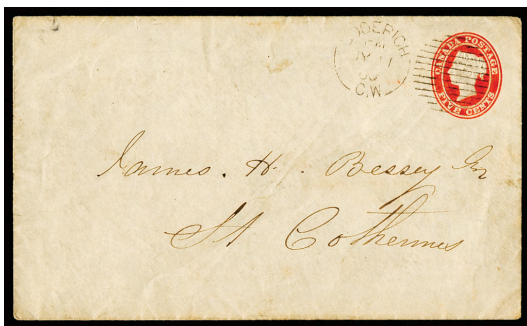 GODERICH
PM
C.W.
CANADA POSTAGE
FIVE CENTS
James. H. Bessey Esq
St Catherines